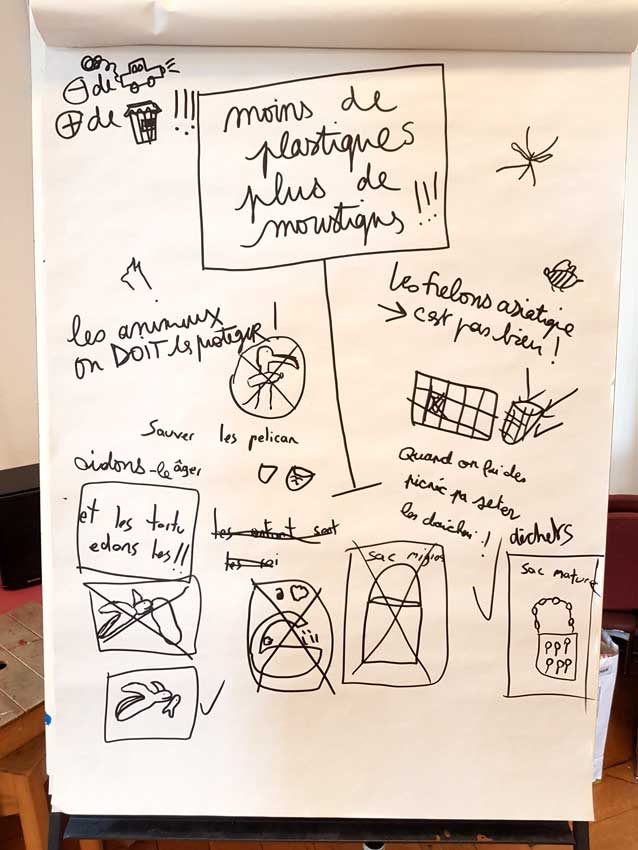 ⊖ de
⊕ de !!!
moins de
plastiques
plus de
moustiqus !!!
les animaux
on DOIT les proteger !
Les frelons asiatique
→ c'est pas bien !
Sauver les pelican
aidons-le âger
et les tortu
edons les !!
les enfant sont
les
Quand on fui des
picnic pa seter
les daichei !
dechets
sac migros
sac mature